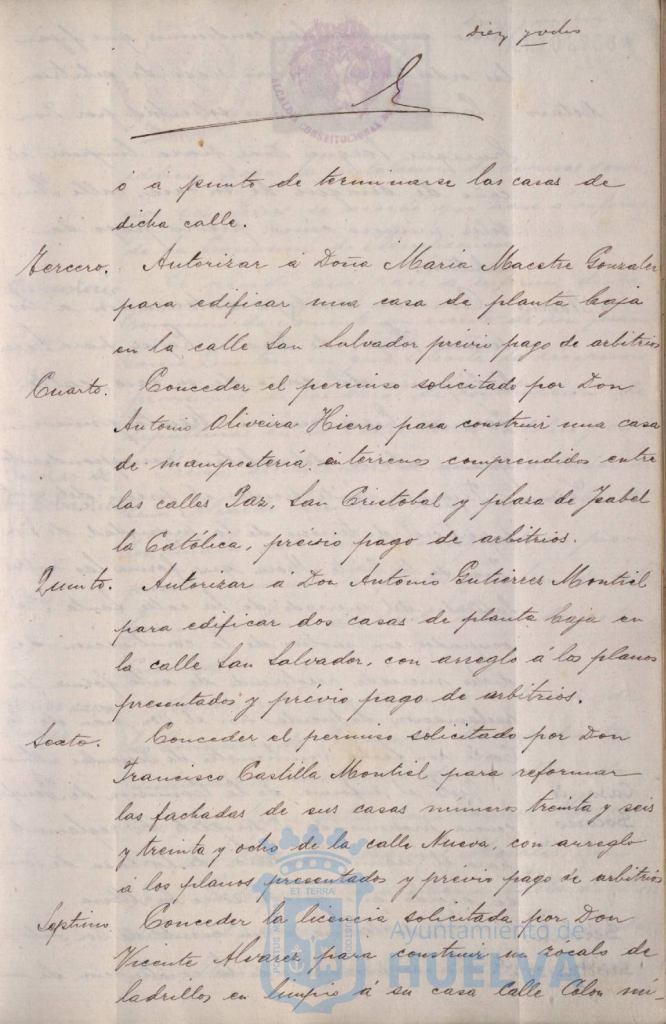 diez y ocho
ALCALDIA CONSTITUCIONAL
ó a punto de terminarse las casas de
dicha calle.
Tercero. Autorizar á Doña Maria Maestre Gonzalez
para edificar una casa de planta baja
en la calle San Salvador prévio pago de arbitrios
Cuarto. Conceder el permiso solicitado por Don
Antonio Oliveira Hierro para construir una casa
de mampostería en terrenos comprendidos entre
las calles Paz, San Cristobal y plaza de Isabel
la Católica, previo pago de arbitrios.
Quinto. Autorizar á Don Antonio Gutierrez Montiel
para edificar dos casas de planta baja en
la calle San Salvador, con arreglo á los planos
presentados y prévio pago de arbitrios.
Sexto. Conceder el permiso solicitado por Don
Francisco Castilla Montiel para reformar
las fachadas de sus casas números treinta y seis
y treinta y ocho de la calle Nueva, con arreglo
á los planos presentados y prévio pago de arbitrios
Septimo Conceder la licencia solicitada por Don
Vicente Alvarez para construir un zócalo de
ladrillos en limpio á su casa Calle Colon nú-
ET TERRA
PORTUS
CUSTODIA
Ayuntamiento de
HUELVA